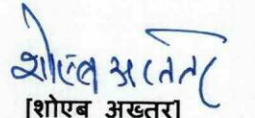 शोएब अख्तर
[शोएब अख्तर]